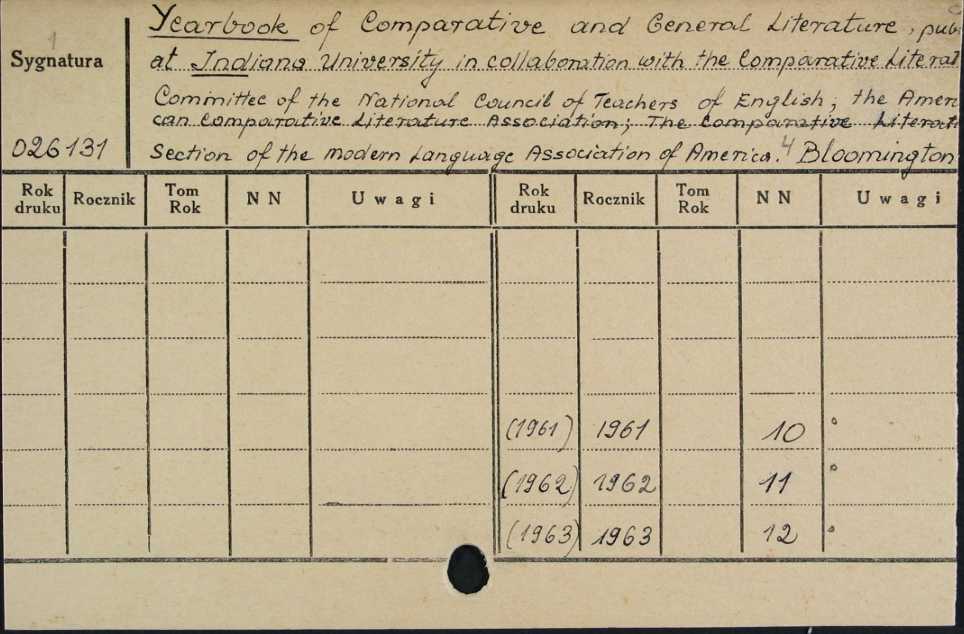 Yearbook of Comparative and General Literature, pub
1
Sygnatura
at Indiana University in collaboration with the Comparative Literat
Committee of the National Council of Teachers of English; the Ameri
can Comparative Literature Association; The Comparative Literat
026131
Section of the modern Language Association of America. 4 Bloomington
Rok druku Rocznik Tom Rok NN Uwagi Rok druku Rocznik Tom Rok NN Uwagi
(1961) 1961 10 °
(1962) 1962 11 °
(1963) 1963 12 °